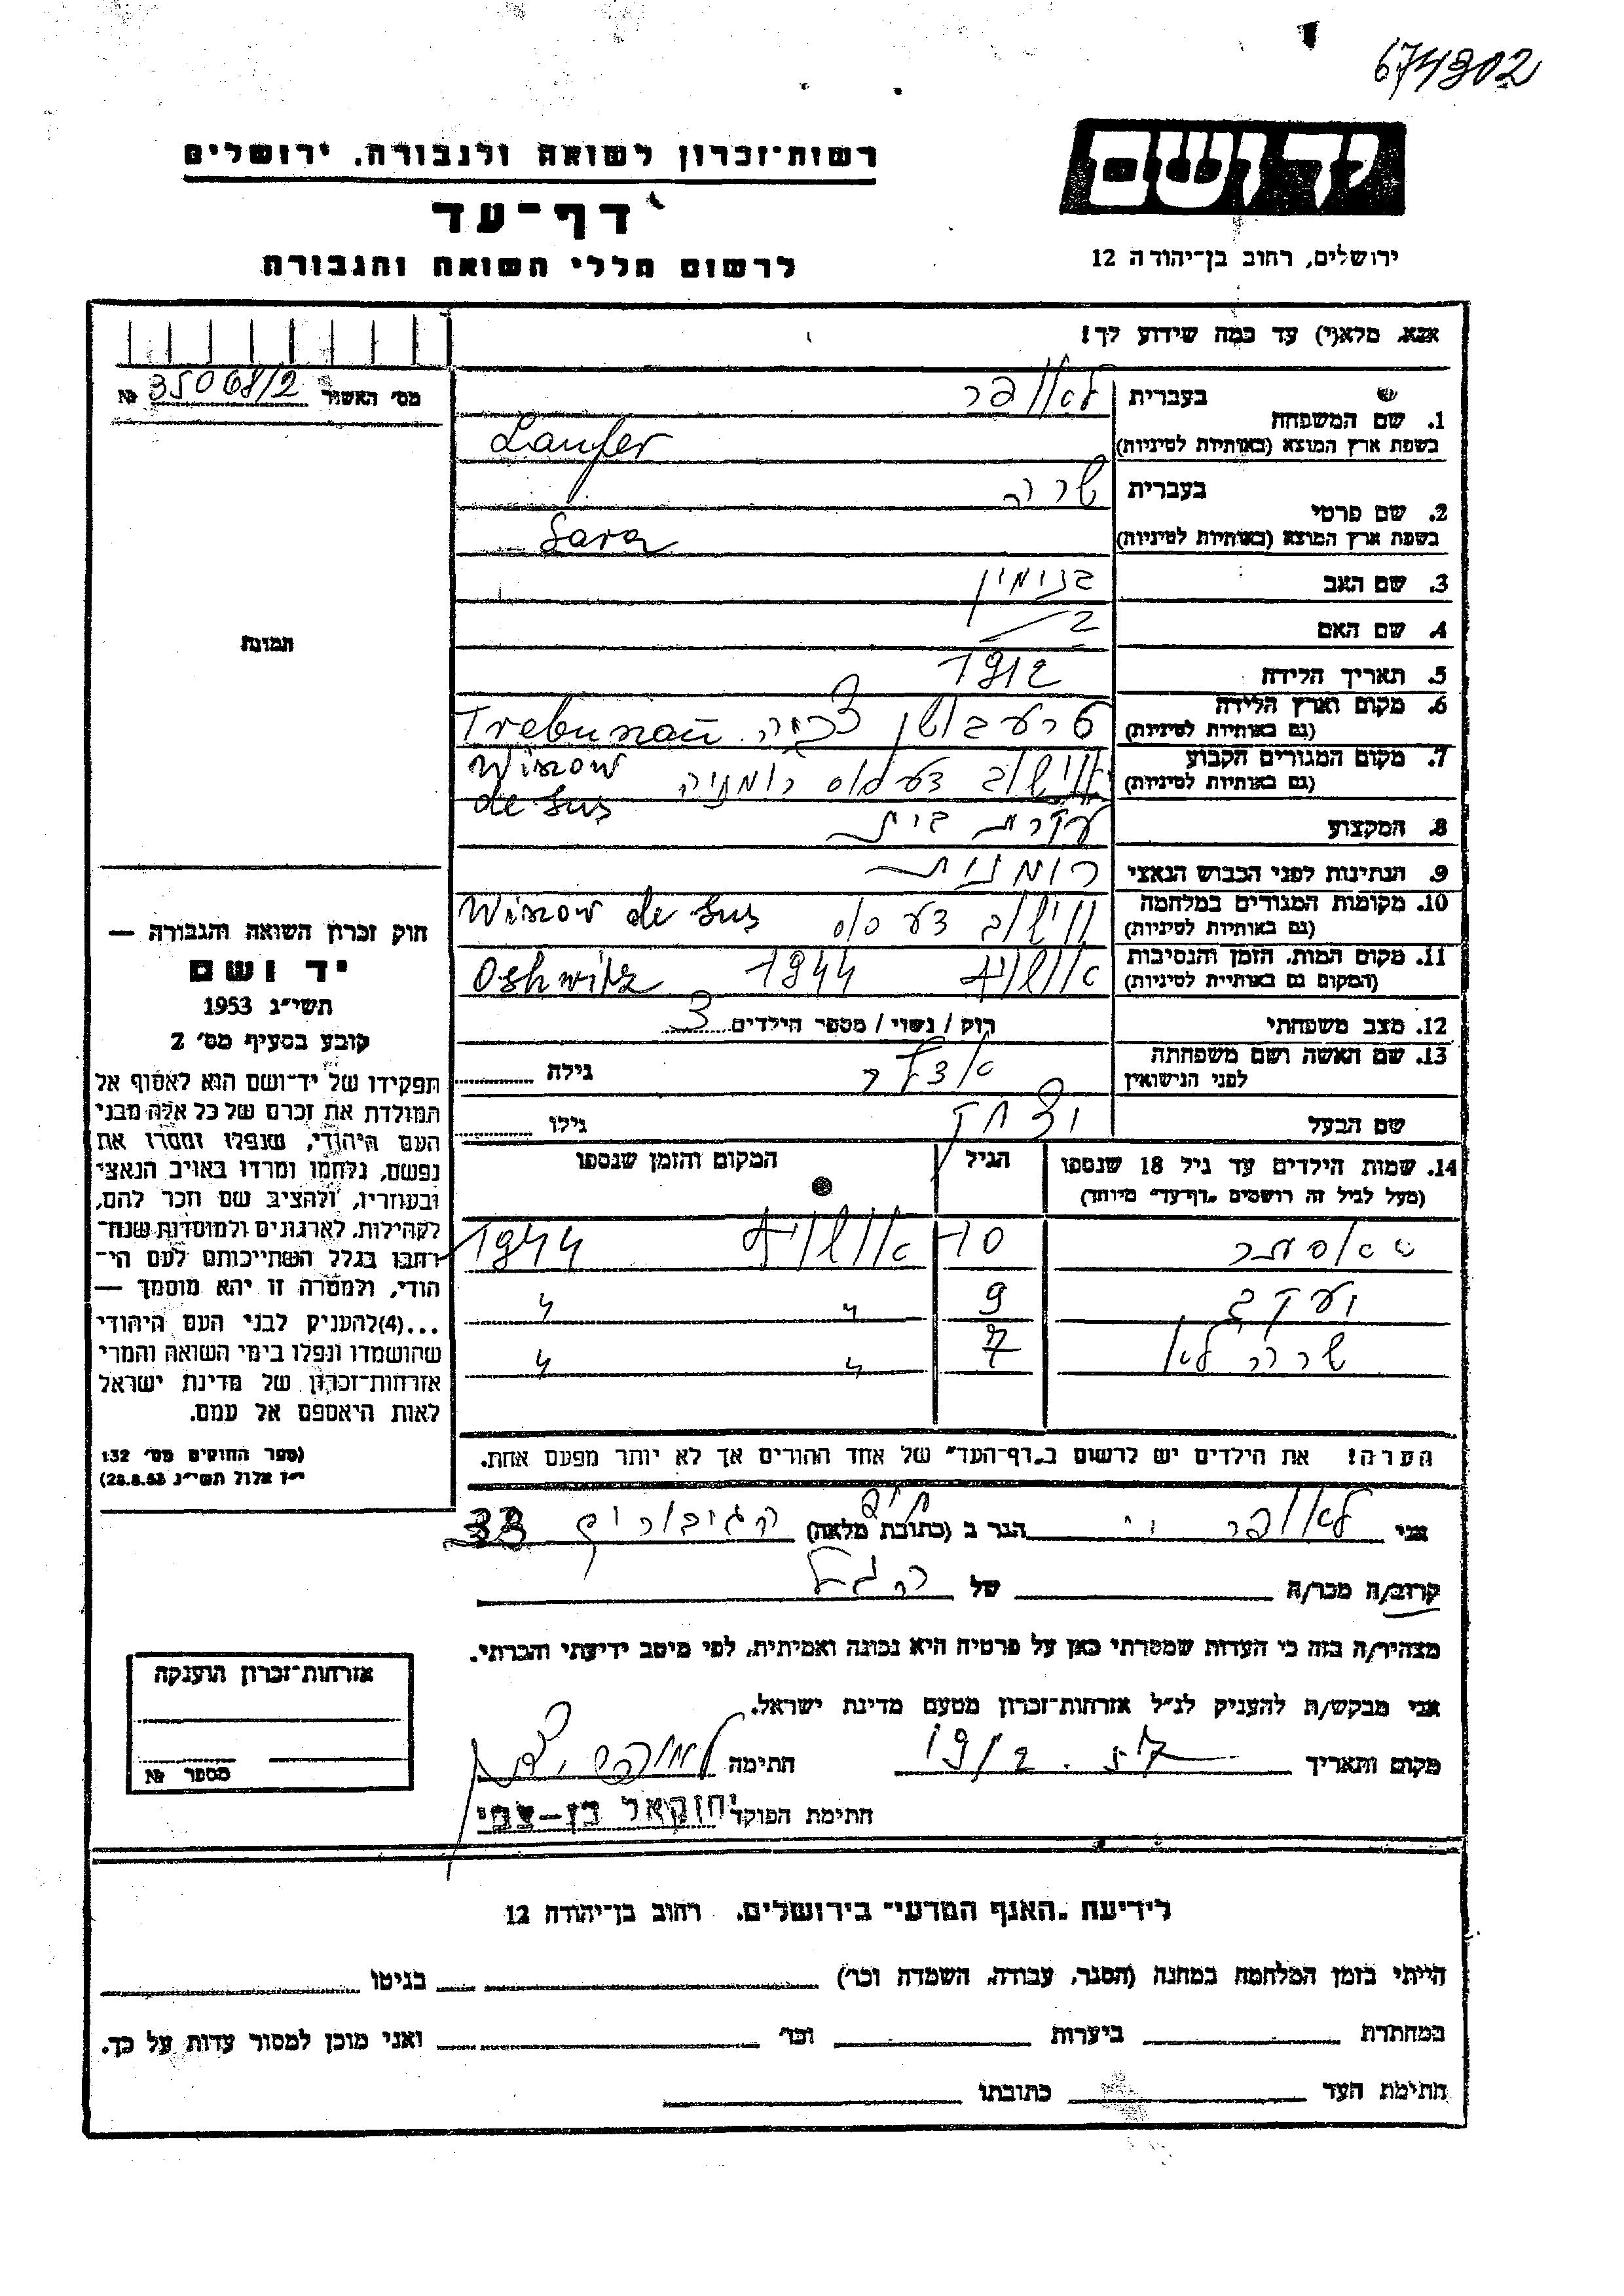 674902
יד ושם
רשות־זכרון לשואה ולגבורה, ירושלים
דף־עד
לרשום חללי השואה והגבורה
ירושלים, רחוב בן־יהודה 12
אנא, מלא(י) עד כמה שידוע לך!
מס׳ האשור 35068/2 №
1. שם המשפחה
בעברית לאופר
בשפת ארץ המוצא (באותיות לטיניות) Laufer
2. שם פרטי
בעברית שרה
בשפת ארץ המוצא (באותיות לטיניות) Sara
3. שם האב בנימין
4. שם האם
5. תאריך הלידה 1912
6. מקום וארץ הלידה
(גם באותיות לטיניות) Trebuszan
7. מקום המגורים הקבוע
(גם באותיות לטיניות) רומניה Wisow de sus
8. המקצוע עקרת בית
9. הנתינות לפני הכבוש הנאצי רומנית
10. מקומות המגורים במלחמה
(גם באותיות לטיניות) Wisow de sus
11. מקום המות, הזמן והנסיבות
(המקום גם באותיות לטיניות) אושויץ 1944 Oshwitz
12. מצב משפחתי רוק / נשוי / מספר הילדים 3
13. שם האשה ושם משפחתה
לפני הנישואין גילה
שם הבעל יצחק גילו
14. שמות הילדים עד גיל 18 שנספו הגיל המקום והזמן שנספו
(מעל לגיל זה רושמים „דף־עד״ מיוחד)
10 אושויץ 1944
יעקב 9 " "
שרה לאה 7 " "
הערה! את הילדים יש לרשום ב„דף־העד״ של אחד ההורים אך לא יותר מפעם אחת.
תמונה
חוק זכרון השואה והגבורה —
יד ושם
תשי״ג 1953
קובע בסעיף מס׳ 2
תפקידו של יד־ושם הוא לאסוף אל
המולדת את זכרם של כל אלה מבני
העם היהודי, שנפלו ומסרו את
נפשם, נלחמו ומרדו באויב הנאצי
ובעוזריו, ולהציב שם וזכר להם,
לקהילות, לארגונים ולמוסדות שנח־
רבו בגלל השתייכותם לעם הי־
הודי, ולמטרה זו יהא מוסמך —
...(4)להעניק לבני העם היהודי
שהושמדו ונפלו בימי השואה והמרי
אזרחות־זכרון של מדינת ישראל
לאות היאספם אל עמם.
(ספר החוקים מס׳ 132
י״ז אלול תשי״ג 28.8.53)
אני לאופר י׳ הגר ב (כתובת מלאה) הגיבורים 33
קרוב/ה מכר/ה של
מצהיר/ה בזה כי העדות שמסרתי כאן על פרטיה היא נכונה ואמיתית, לפי מיטב ידיעתי והכרתי.
אני מבקש/ת להעניק לנ״ל אזרחות־זכרון מטעם מדינת ישראל.
מקום ותאריך 19/2.57 חתימה
חתימת הפוקד יחזקאל בן-צבי
אזרחות־זכרון הוענקה
מספר №
לידיעת „האגף המדעי״ בירושלים, רחוב בן־יהודה 12
הייתי בזמן המלחמה במחנה (הסגר, עבודה, השמדה וכו׳) בגיטו
במחתרת ביערות וכו׳ ואני מוכן למסור עדות על כך.
חתימת העד כתובתו